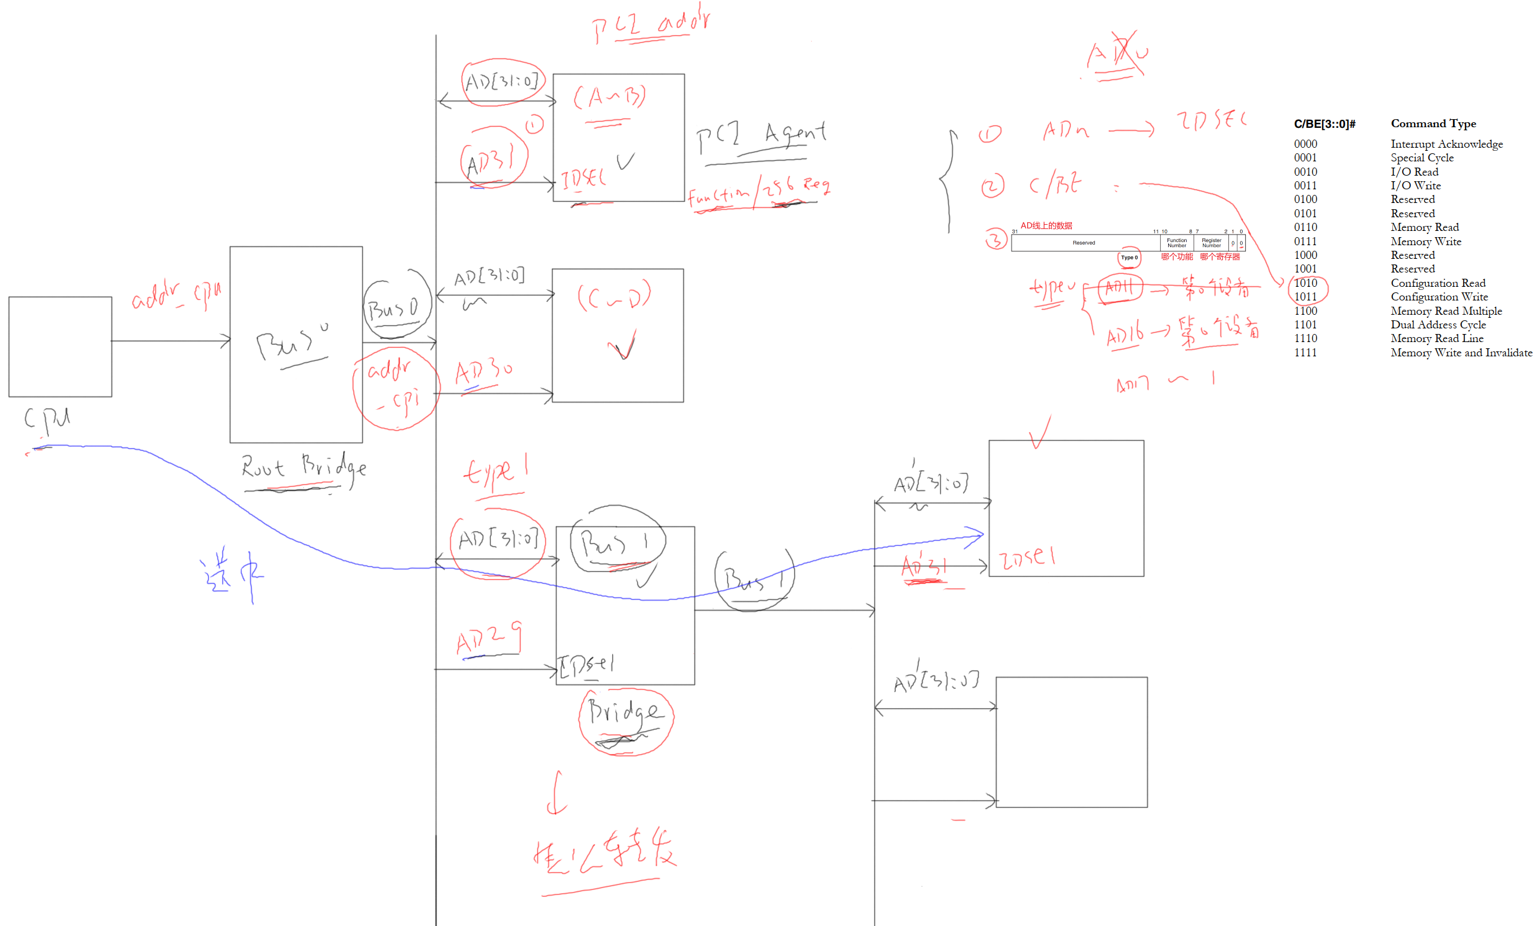 PCI addr
AD[31:0]
(A~B)
①
AD31
IDSEL
PCI Agent
Function/256 Reg
AD[31:0]
(C~D)
AD30
CPU
addr_cpu
Bus 0
Root Bridge
Bus0
addr
_cpi
选中
type1
AD[31:0]
Bus 1
AD29
IDsel
Bridge
怎么转发
Bus 1
AD'[31:0]
AD'31
IDSel
AD'[31:0]
① ADn → IDSEL
② C/BE :
③ AD线上的数据
31 11 10 8 7 2 1 0
Reserved Function Number Register Number 0 0
Type 0 哪个功能 哪个寄存器
type0 AD11 → 第0个设备
AD16 → 第0个设备
AD17 ~ 1
C/BE[3::0]# Command Type
0000 Interrupt Acknowledge
0001 Special Cycle
0010 I/O Read
0011 I/O Write
0100 Reserved
0101 Reserved
0110 Memory Read
0111 Memory Write
1000 Reserved
1001 Reserved
1010 Configuration Read
1011 Configuration Write
1100 Memory Read Multiple
1101 Dual Address Cycle
1110 Memory Read Line
1111 Memory Write and Invalidate